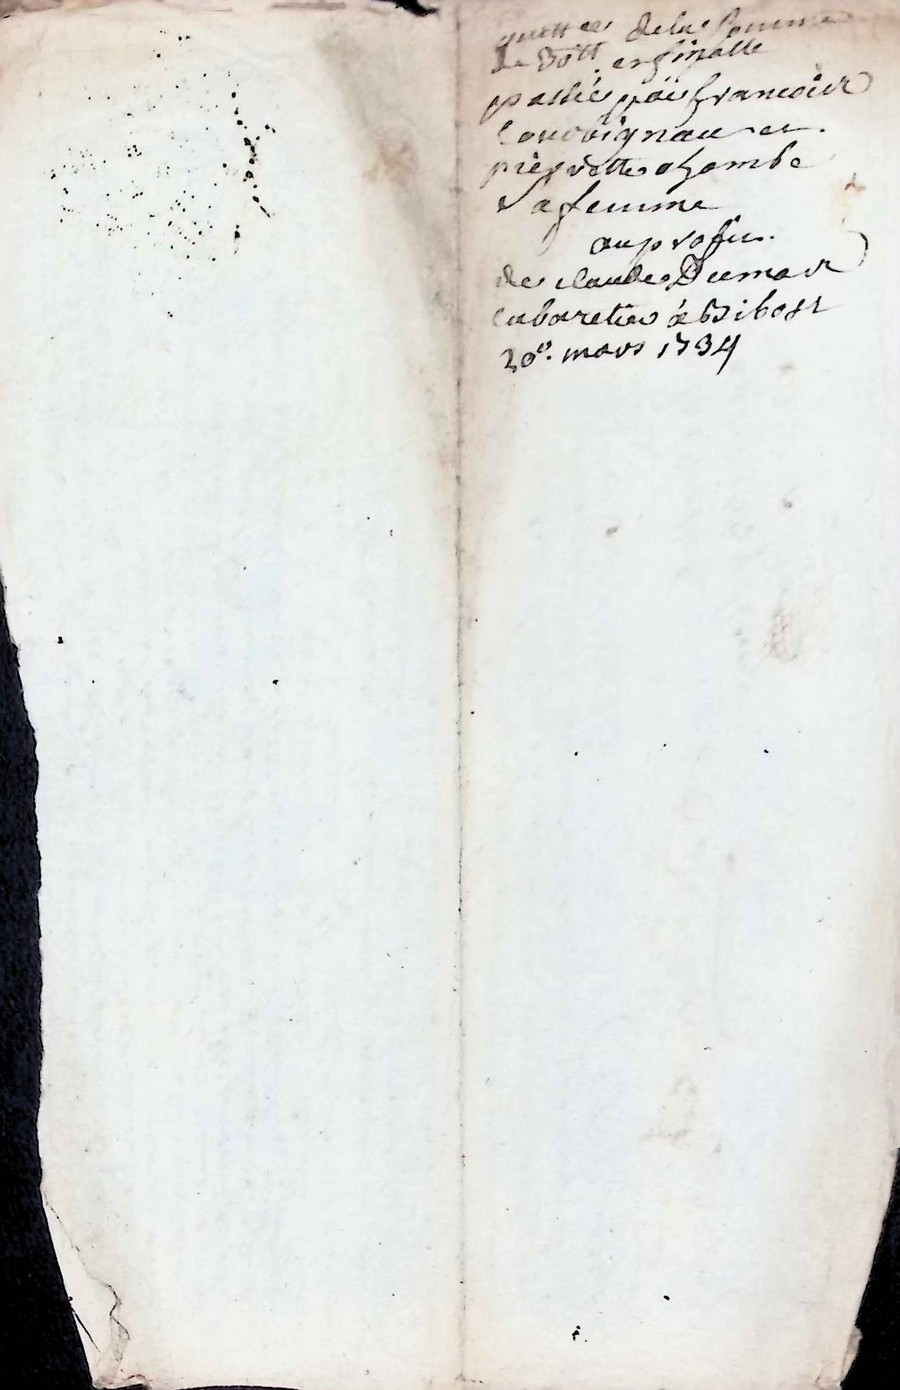 quittee de la somme
de 50 tt en finalle
passée par francois
Courbignau et
pierrette chambe
sa femme
au profit
de claude Dumas
Cabaretier à Bibost
20e. mars 1734